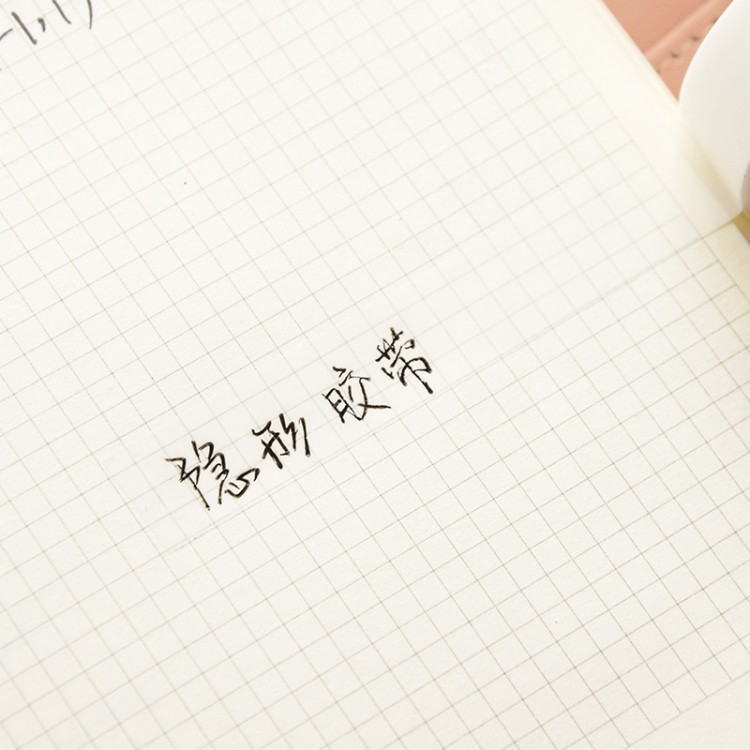 隐形胶带